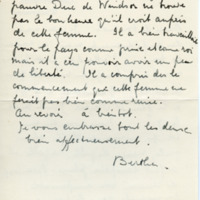 pauvre Duc de Windsor ni trouve
pas le bonheur qu'il croit auprès
de cette femme. Il a bien travaillé
pour le pays comme prince et comme roi
mais il a cru pouvoir avoir un peu
de liberté. Il a compris dès le
commencement que cette femme ne
ferait pas bien comme reine.
Au revoir à bientot.
Je vous embrasse tout les deux
bien affectueusement.
Berthe